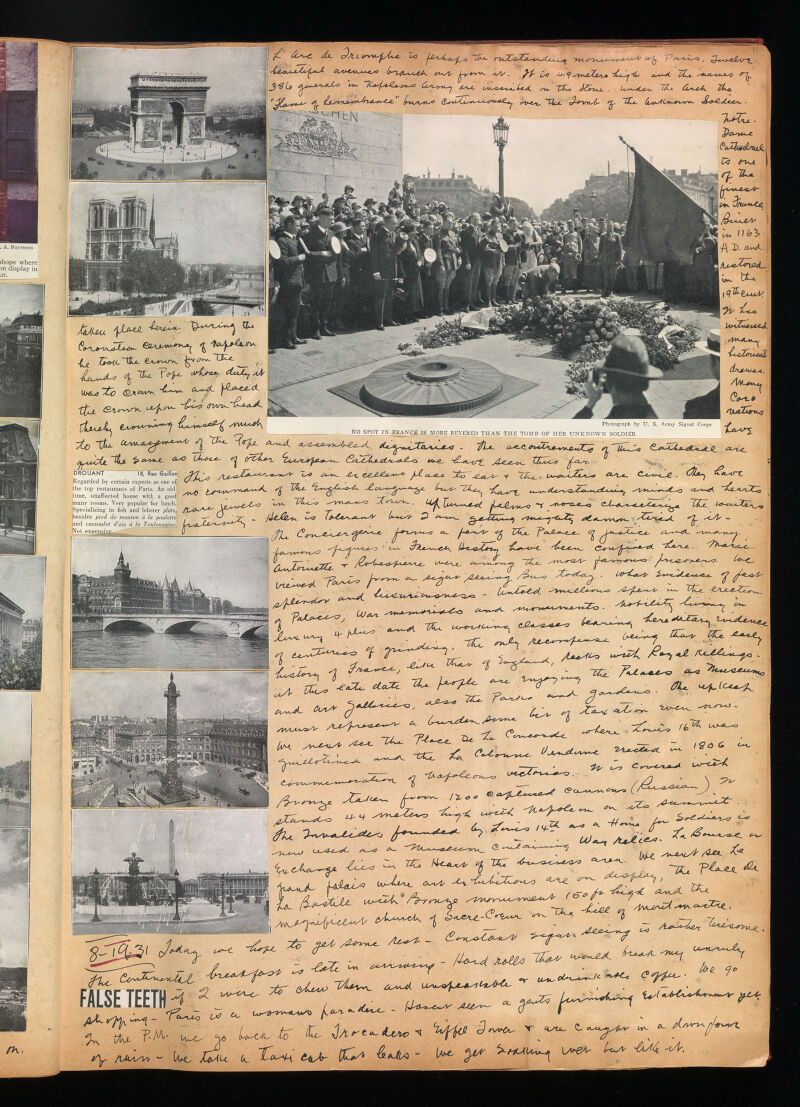 L'Arc de Triomphe is perhaps the outstanding monument of Paris. Twelve
beautiful avenues branch out from it. It is 49 meters high and the names of
386 generals in Napoleons Army are inscribed on the stone. Under the Arch the
"Flame of Remembrance" burns continuously over the Tomb of the Unknown Soldier.
Notre-
Dame
Cathedral
is one
of the
finest
in France
Built
in 1163
A.D. and
restored
in the
19th cent.
It has
witnessed
many
historical
dramas.
Many
Coro
nations
have
taken place herein. During the
Coronation Ceremony of Napoleon
he took the crown from the
hands of the Pope whose duty it
was to crown him and placed
the crown upon his own head
thereby crowning himself much
to the amazement of the Pope and assembled dignitaries. The accoutrements of this Cathedral are
quite the same as those of other European Cathedrals we have seen thus far.
Photograph by U. S. Army Signal Corps
NO SPOT IN FRANCE IS MORE REVERED THAN THE TOMB OF HER UNKNOWN SOLDIER
DROUANT 18, Rue Gaillon
Regarded by certain experts as one of
the top restaurants of Paris. An old-
time, unaffected house with a good
many rooms. Very popular for lunch.
Specializing in fish and lobster plats,
besides pied de mouton à la poulette
and cassoulet d'oie à la Toulousaine.
Not expensive.
This restaurant is an excellent place to eat & the waiters are civil. They have
no command of the English language but they have understanding minds and hearts
rare jewels in this mans town. Upturned palms & noses characterize the waiters
fraternity - Helen is tolerant but I am getting mighty damn tired of it -
The Conciergerie forms a part of the Palace of Justice and many
famous figures in French History have been confined here. Marie
Antoinette & Robespierre were among the most famous prisoners. We
viewed Paris from a sight seeing Bus today. What evidence of past
splendor and luxuriousness - Untold millions spent in the erection
of Palaces, War memorials and monuments. Nobility living in
luxury 4 plus and the working classes bearing hereditary evidence
of centuries of grinding, the only recompense being that the early
history of France, like that of England, reeks with Royal Killings.
At this late date the people are enjoying the Palaces as Museums
and art galleries, also the Parks and gardens. The upkeep
must represent a burdensome bit of taxation even now.
We next see the Place De La Concorde where Louis 16th was
guillotined and the La Colonne Vendome erected in 1806 in
commemoration of Napoleons victories. It is covered with
Bronze taken from 1200 captured cannons (Russian). It
stands 44 meters high with Napoleon on its summit.
The Invalides founded by Louis 14th as a Home for Soldiers is
now used as a Museum containing War relics. La Bourse or
Exchange lies in the Heart of the business area. We next see Le
grand palais where art exhibitions are on display, the Place De
La Bastile with Bronze monument 150 ft high and the
magnificent church of Sacre-Cœur on the hill of montmartre.
8-19-31 Today we hope to get some rest - Constant sight seeing is rather tiresome.
The Continental breakfast is late in arriving - Hard rolls that would break my unruly
FALSE TEETH if I were to chew them and unspeakable & undrinkable coffee. We go
shopping - Paris is a womans paradise - Havent seen a gents furnishing Establishment yet.
In the P.M. we go back to the Trocadero & Eiffel Tower & are caught in a downpour
of rain - We take a taxi cab that leaks - We get soaking wet but like it.
A. Buyssens
shops where
on display in
on.